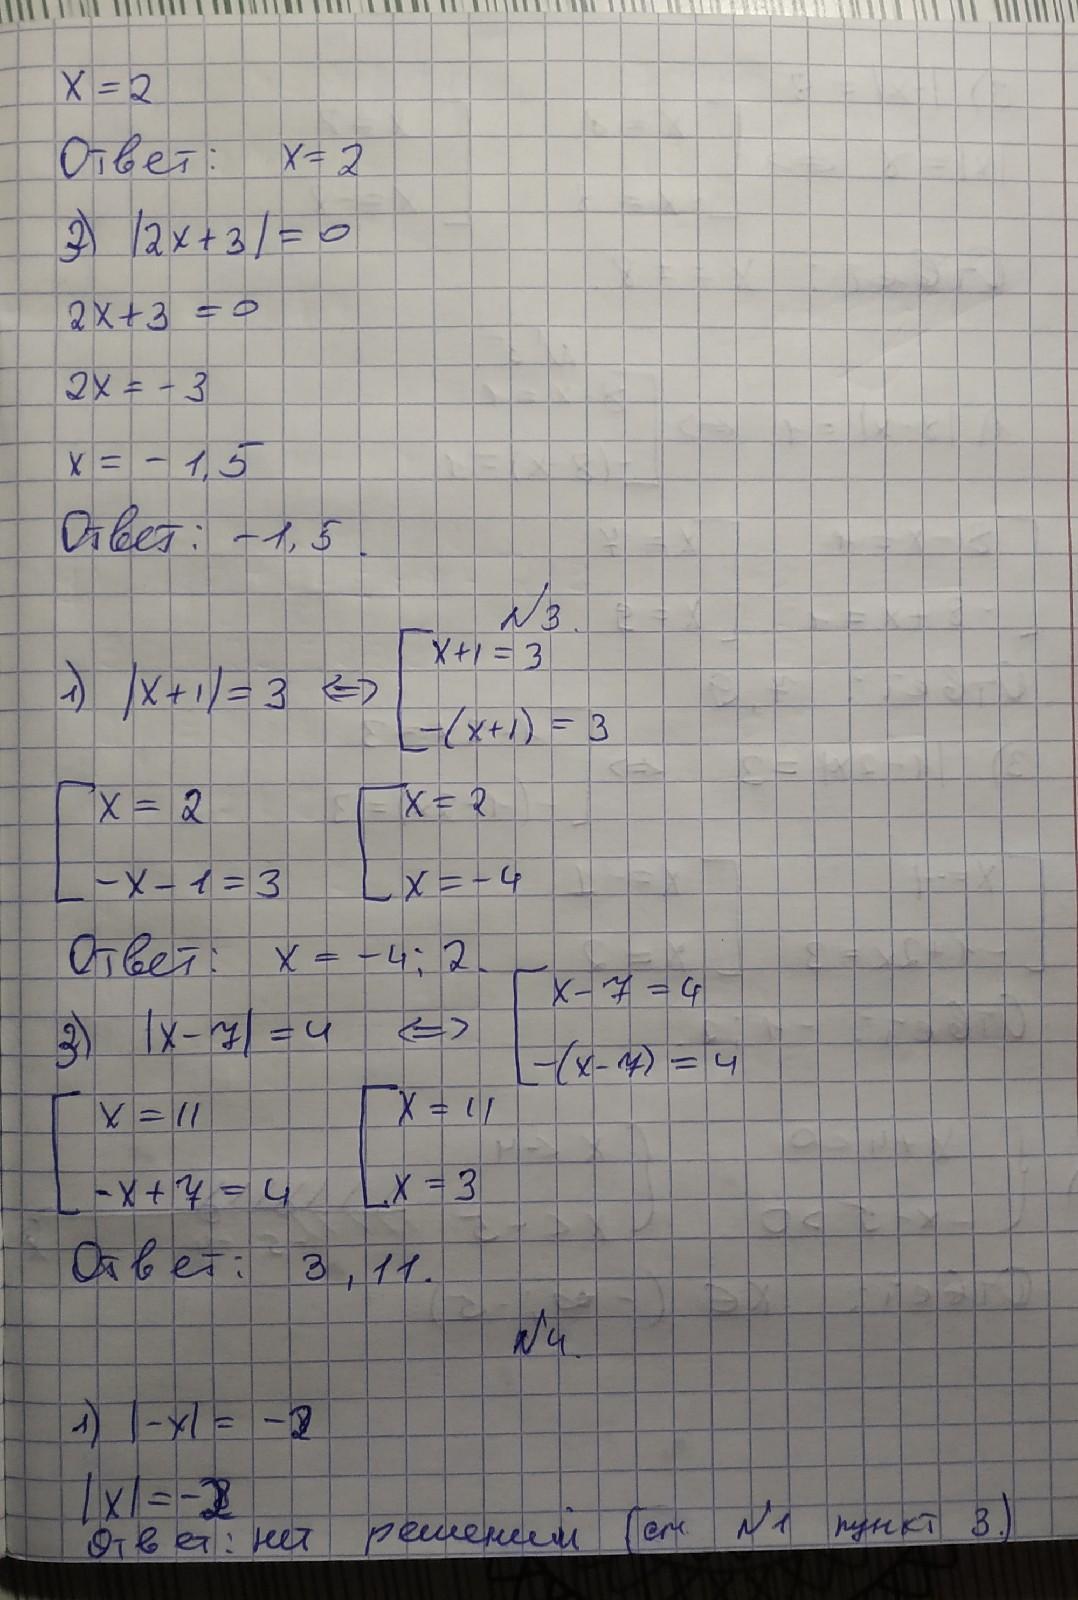 x = 2
Ответ: x = 2
3) |2x+3| = 0
2x+3 = 0
2x = -3
x = -1,5
Ответ: -1,5.
№3.
1) |x+1| = 3 <=> [ x+1 = 3
-(x+1) = 3
[ x = 2 [ x = 2
-x-1 = 3 x = -4
Ответ: x = -4; 2.
3) |x-7| = 4 <=> [ x-7 = 4
-(x-7) = 4
[ x = 11 [ x = 11
-x+7 = 4 x = 3
Ответ: 3, 11.
№4.
1) |-x| = -2
|x| = -2
Ответ: нет решений (см. №1 пункт 3.)